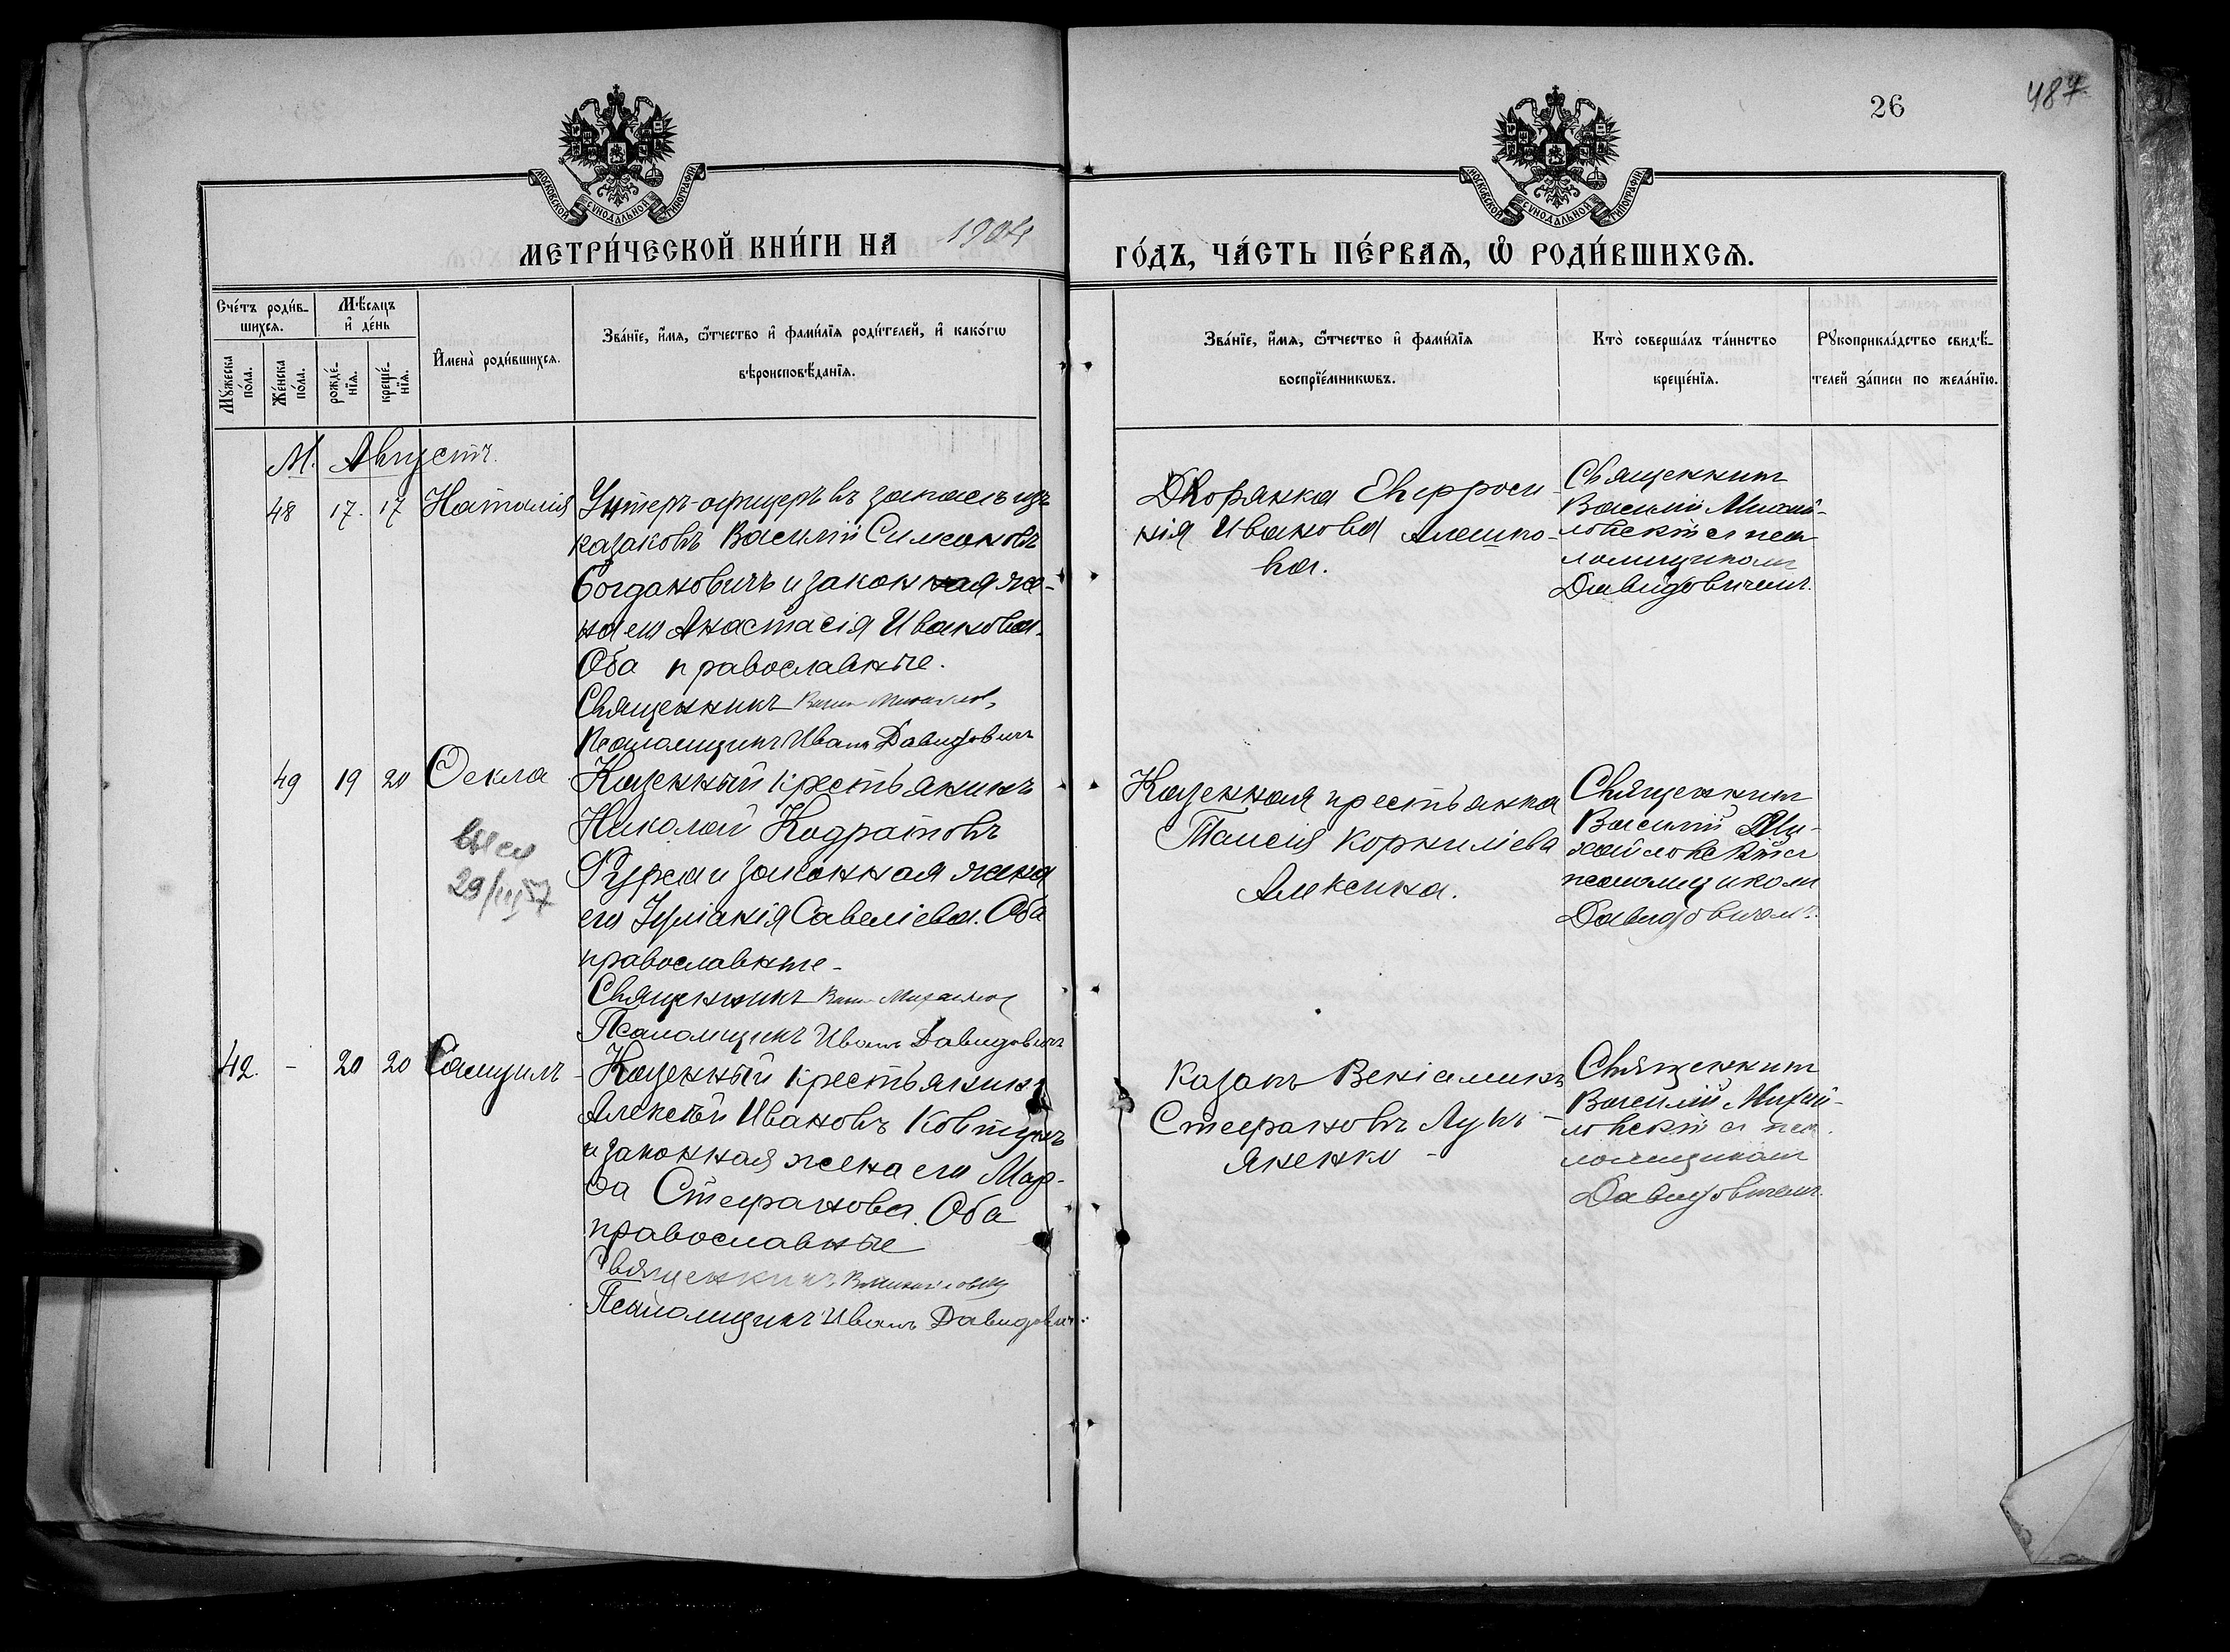 26
487
МОСКОВСКОЙ СѴНОДАЛЬНОЙ ТИПОГРАФІИ
МОСКОВСКОЙ СѴНОДАЛЬНОЙ ТИПОГРАФІИ
МЕТРИ́ЧЕСКОЙ КНИ́ГИ НА 1904
ГО́ДЪ, ЧА́СТЬ ПЕ́РВАѦ, Ѡ҆ РОДИ́ВШИХСѦ.
Сче́тъ роди́в-
шихсѧ.
Мꙋ́жеска по́ла.
Же́нска по́ла.
Мѣ́сѧцъ
и҆ де́нь
рожде́-
нїѧ.
креще́-
нїѧ.
И҆мена̀ роди́вшихсѧ.
Зва́нїе, и҆́мѧ, ѻ҆́тчество и҆ фами́лїѧ роди́телей, и҆ како́гѡ
вѣроисповѣ́данїѧ.
Зва́нїе, и҆́мѧ, ѻ҆́тчество и҆ фами́лїѧ
воспрїе́мникѡвъ.
Кто̀ соверша́лъ та́инство
креще́нїѧ.
Рꙋкоприкла́дство свидѣ́-
телей за́писи по жела́нїю.
М. Августъ.
48 17. 17 Наталія
Унтеръ-офицеръ въ запасѣ изъ
казаковъ Василій Симеоновъ
Богдановичъ и законная же-
на его Анастасія Иванова.
Оба православные.
Священникъ
Псаломщикъ Иванъ Давидовичъ
Дворянка Евфроси-
нія Иванова Алешко-
ва.
Священникъ
Василій Михай-
ловскій съ пса-
ломщикомъ
Давидовичемъ.
49 19 20 Ѳекла
29/III 57
Казенный крестьянинъ
Николай Кодратовъ
Фурса и законная жена
его Іуліанія Савеліева. Оба
православные.
Священникъ
Псаломщикъ Иванъ Давидовичъ
Казенная крестьянка
Таисія Корниліева
Алексина.
Священникъ
Василій Ми-
хайловскій съ
псаломщикомъ
Давидовичемъ.
42. - 20 20 Самуилъ
Казенный крестьянинъ
Алексѣй Ивановъ Ковтунъ
и законная жена его Мар-
ѳа Стефанова. Оба
православные
Священникъ В Михайловскій
Псаломщикъ Иванъ Давидовичъ
Казакъ Веніаминъ
Стефановъ Лукь-
яненко -
Священникъ
Василій Михай-
ловскій съ пса-
ломщикомъ
Давидовичемъ.